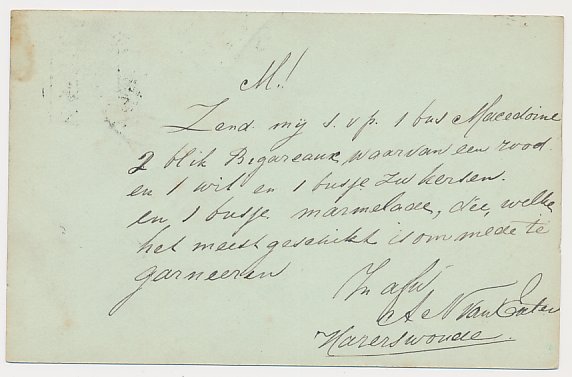 M.!
Zend mij s. v p. 1 bus Macedoine
2 blik Bigareaux waarvan een rood
en 1 wit en 1 busje kersen.
en 1 busje marmelade, die, welke
het meest geschikt is om mede te
garneeren
A N van
Hazerswoude.